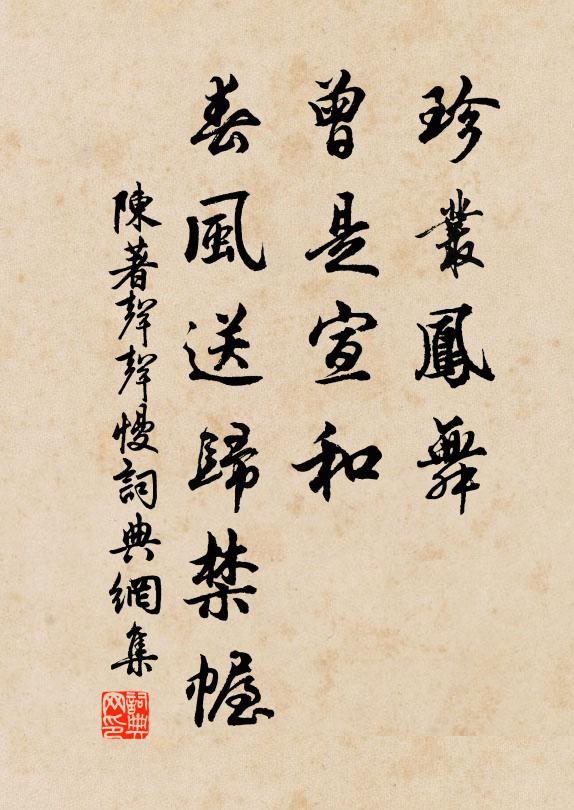 珍叢鳳舞
曾是宣和
春風送歸禁幄
陳著聲聲慢詞典網集
詞典网印